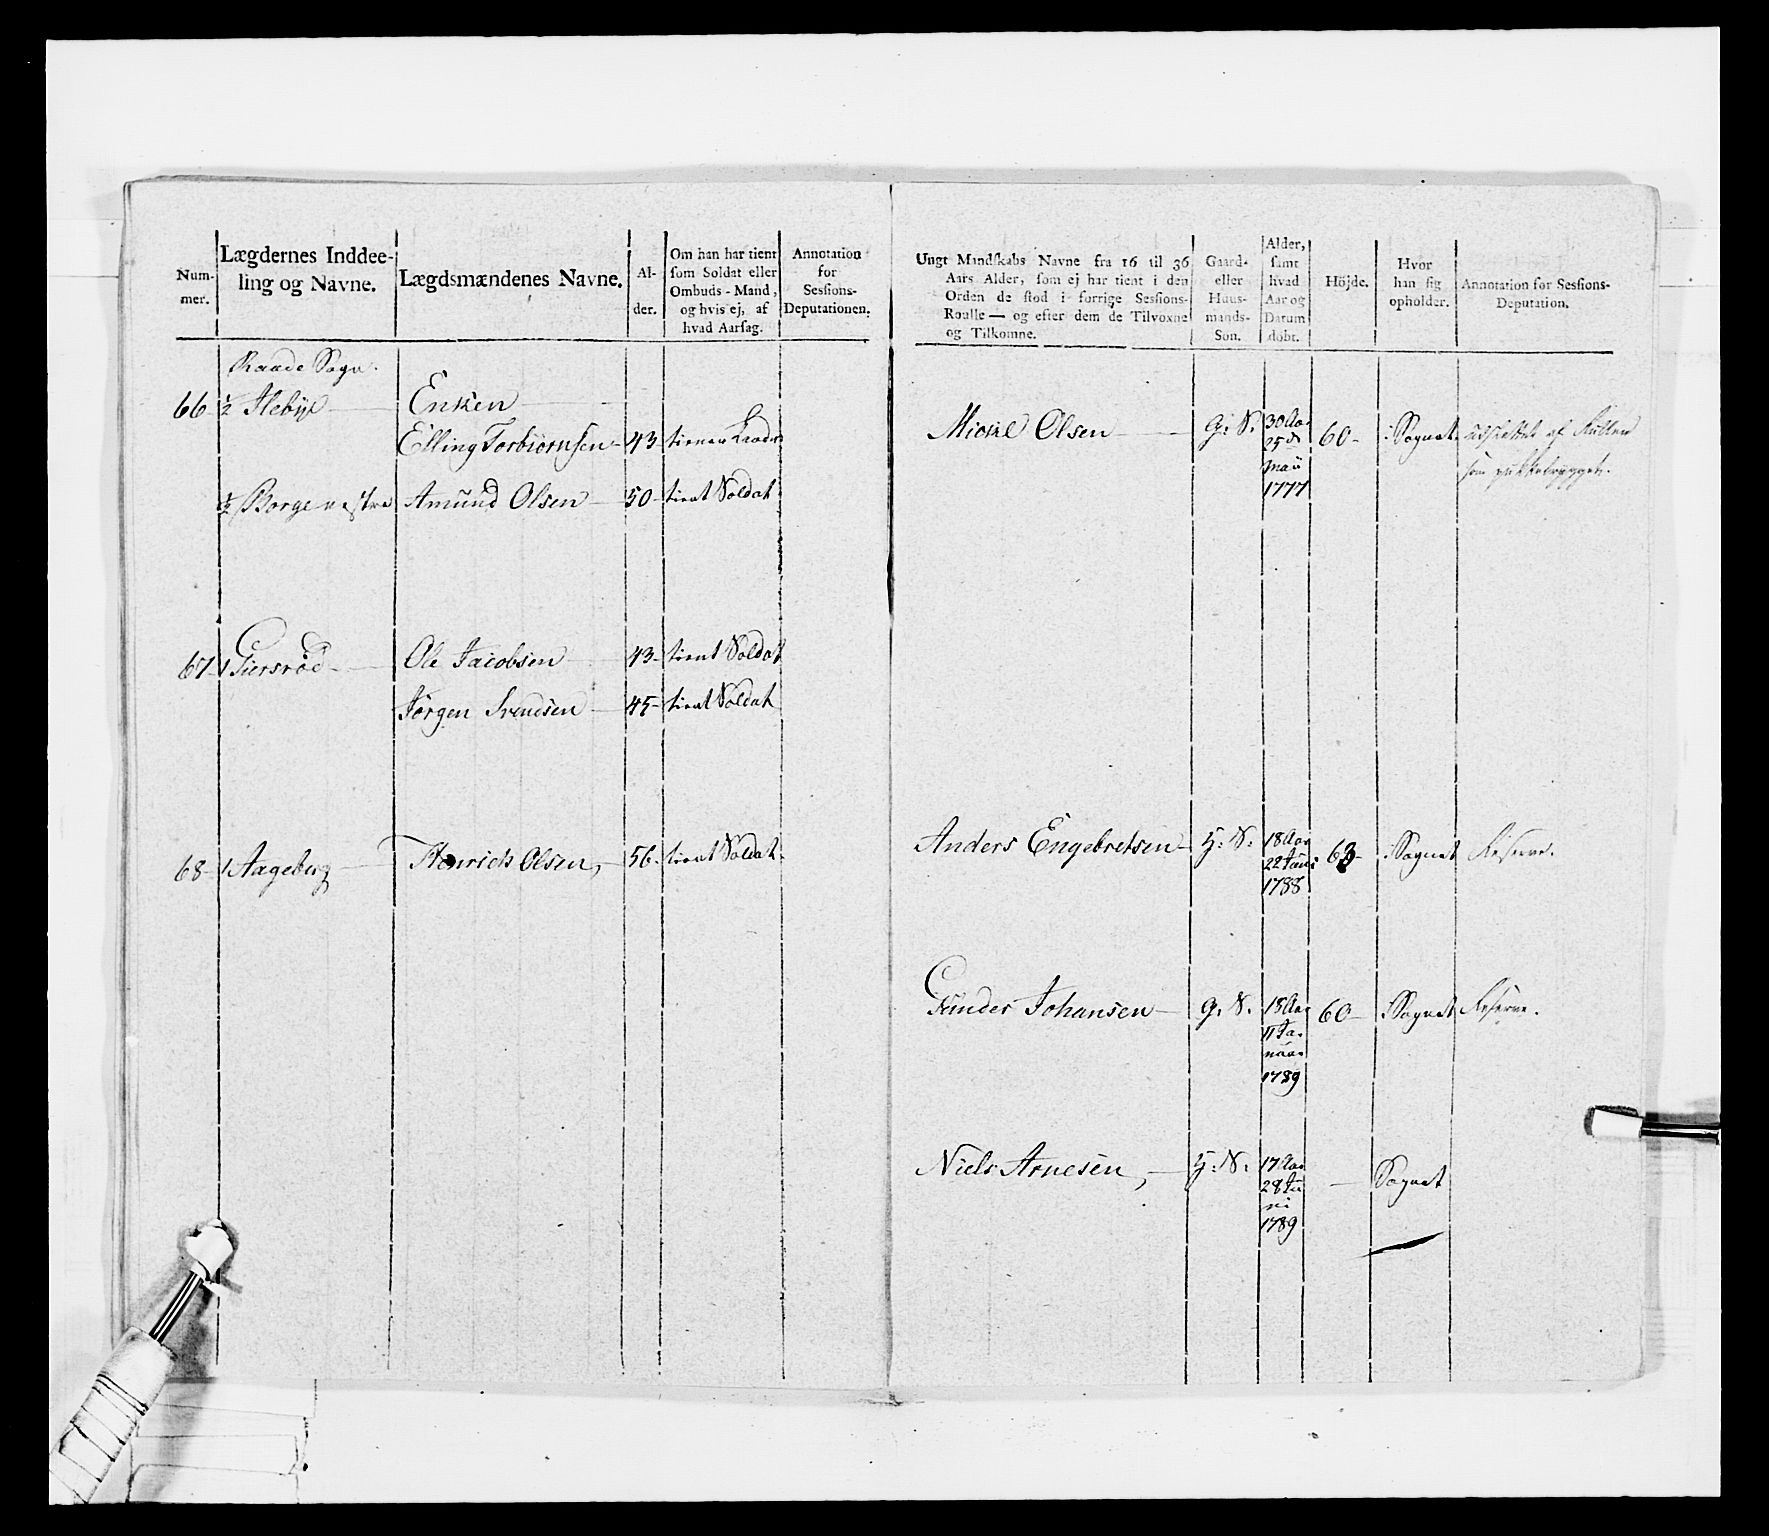 Num-
mer.
Lægdernes Inddee-
ling og Navne.
Lægdsmændenes Navne.
Al-
der.
Om han har tient
som Soldat eller
Ombuds-Mand,
og hvis ej, af
hvad Aarsag.
Annotation
for
Sessions-
Deputationen.
Raade Sogn.
66 ½ Ilebÿe Enken
Elling Torbiørnsen 43 tiener
½ Borge vestre Amund Olsen 50 tient Soldat
67 1 Giersrød Ole Jacobsen 43 tient Soldat
Jørgen Svendsen 45 tient Soldat
68 1 Aageberg Henrich Olsen, 56 tient Soldat
Ungt Mandskabs Navne fra 16 til 36
Aars Alder, som ej har tient i den
Orden de stod i forrige Sessions-
Roulle — og efter dem de Tilvoxne
og Tilkomne.
Gaard-
eller
Huus-
mands-
Søn.
Alder,
samt
hvad
Aar og
Datum
døbt.
Höjde.
Hvor
han sig
opholder.
Annotation for Sessions-
Deputation.
Mickel Olsen G. S. 30 Aar 60 i Sognet udslettet af Rullen
25de som
Maii
1777
Anders Engebretsen H. S. 18 Aar 63 i Sognet Reserve.
22 Juni
1788
Gunder Johansen G. S. 18 Aar 60 i Sognet Reserve.
11 Ja-
nuar
1789
Niels Arnesen, H. S. 17 Aar — Sognet
28 Ju
ni
1789